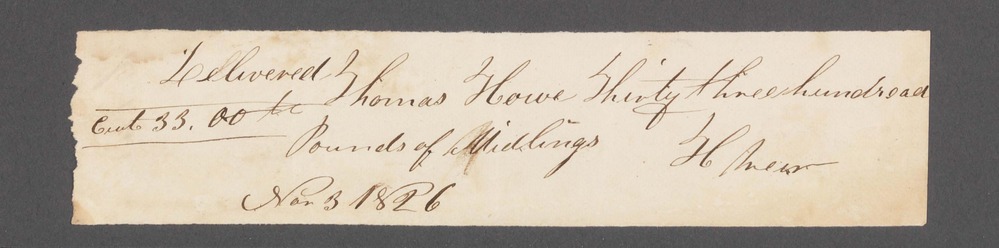 Delivered Thomas Howe Thirty three hundread
Cwt 33.00 lb
Pounds of Midlings
H
Nov 3 1826